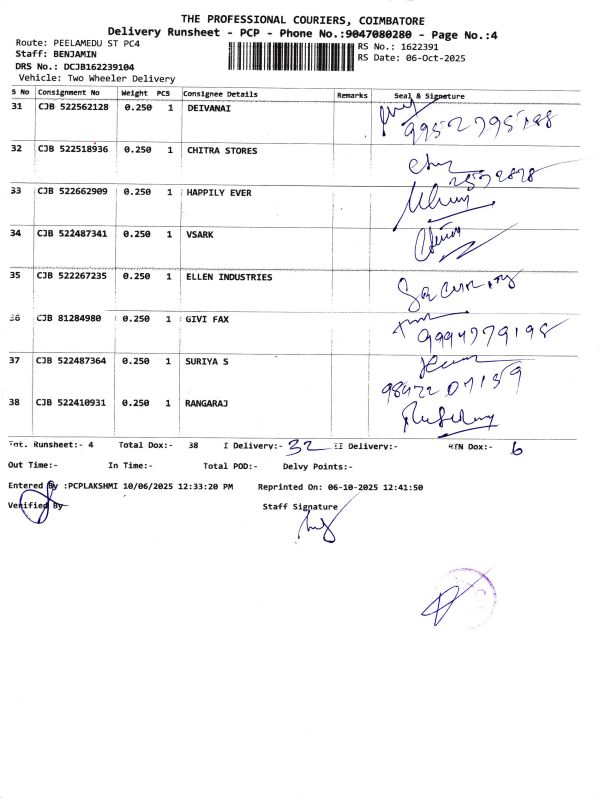 THE PROFESSIONAL COURIERS, COIMBATORE
Delivery Runsheet - PCP - Phone No.:9047080280 - Page No.:4
Route: PEELAMEDU ST PC4
RS No.: 1622391
Staff: BENJAMIN
RS Date: 06-Oct-2025
DRS No.: DCJB162239104
Vehicle: Two Wheeler Delivery
S No Consignment No Weight PCS Consignee Details Remarks Seal & Signature
31 CJB 522562128 0.250 1 DEIVANAI
32 CJB 522518936 0.250 1 CHITRA STORES
33 CJB 522662909 0.250 1 HAPPILY EVER
34 CJB 522487341 0.250 1 VSARK
35 CJB 522267235 0.250 1 ELLEN INDUSTRIES
Security
36 CJB 81284980 0.250 1 GIVI FAX
9994779198
37 CJB 522487364 0.250 1 SURIYA S
38 CJB 522410931 0.250 1 RANGARAJ
Tot. Runsheet:- 4 Total Dox:- 38 I Delivery:- 32 II Delivery:- RTN Dox:- 6
Out Time:- In Time:- Total POD:- Delvy Points:-
Entered By :PCPLAKSHMI 10/06/2025 12:33:20 PM Reprinted On: 06-10-2025 12:41:50
Verified By Staff Signature